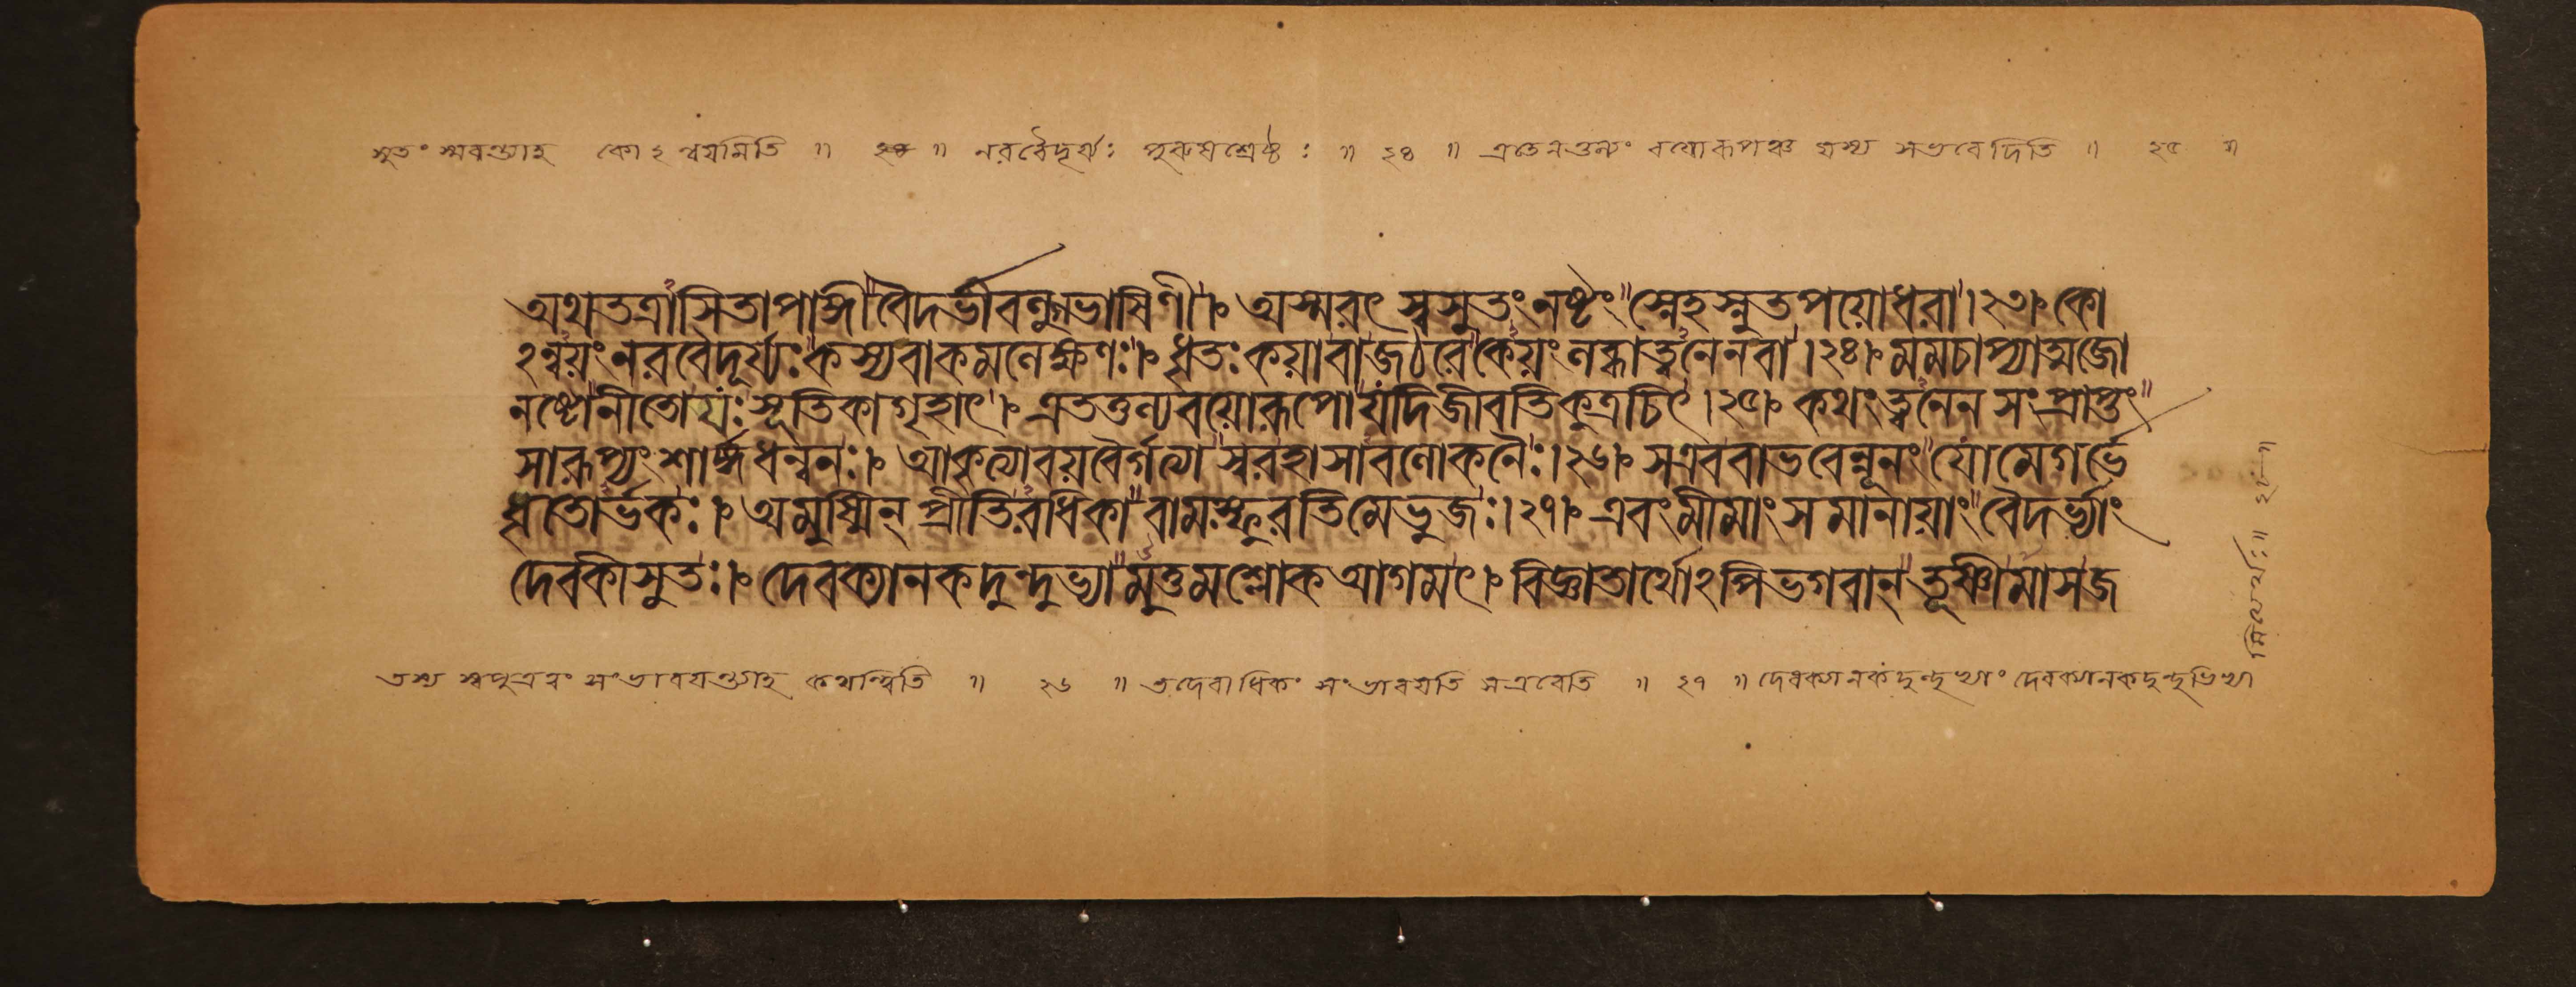 সুতং স্মরন্ত্যাহ কোঽন্বয়মিতি ॥ ২৪ ॥ নরবৈদূর্য্যঃ পুরুষশ্রেষ্ঠঃ ॥ ২৪ ॥ এতেনতুল্যং বয়োরূপঞ্চ যস্য সভবেদিতি ॥ ২৫ ॥
অথতত্রাসিতাপাঙ্গী বৈদর্ভীবল্গুভাষিণী । অস্মরৎ স্বসুতংনষ্টং স্নেহস্নুতপয়োধরা ।২৩। কো
ঽন্বয়ংনরবৈদূর্য্যঃ কস্যবাকমলেক্ষণঃ । ধৃতঃকয়াবাজঠরে কেয়ংলব্ধাত্বনেনবা ।২৪। মমচাপ্যাত্মজো
নষ্টোনীতোযঃসূতিকাগৃহাৎ । এতত্তুল্যবয়োরূপো যদিজীবতিকুত্রচিৎ ।২৫। কথংত্বনেন সংপ্রাপ্তং
সারূপ্যং শার্ঙ্গধন্বনঃ । আকৃত্যাবয়বৈর্গত্যা স্বরহাসাবলোকনৈঃ ।২৬। সএববাভবেন্নূনং যোমেগর্ভে
ধৃতোর্ভকঃ । অমুষ্মিন্ প্রীতিরধিকা বামঃস্ফুরতিমেভুজঃ ।২৭। এবংমীমাংসমানায়াং বৈদর্ভ্যাং
দেবকীসুতঃ । দেবক্যানকদুন্দুভ্যা মুত্তমশ্লোকআগমৎ । বিজ্ঞাতার্থোঽপিভগবান্ তূষ্ণীমাসজ
তস্য স্বপুত্রত্বং সংভাবয়ন্ত্যাহ কথন্ত্বিতি ॥ ২৬ ॥ তদেবাধিকং সংভাবয়তি সএবেতি ॥ ২৭ ॥ দেবক্যানকদুন্দুভ্যাং দেবক্যানকদুন্দুভিভ্যা
মিত্যর্থঃ ॥ ২৮ ॥